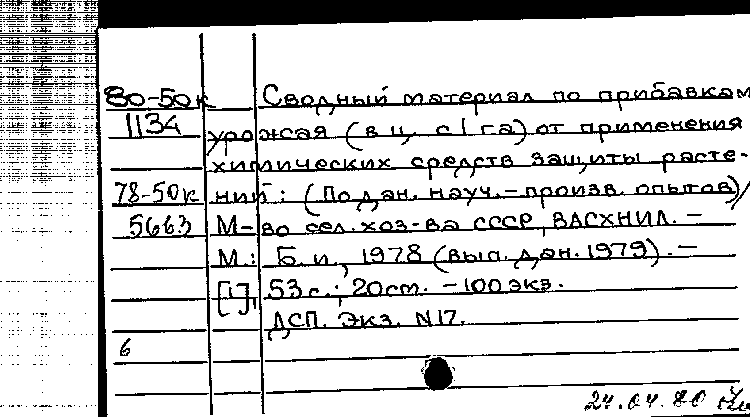 80-50к Сводный материал по прибавкам
1134 урожая (в ц. с 1 га) от применения
химических средств защиты расте-
78-50к ний: (По дан. науч.-произв. опытов)/
5663 М-во сел. хоз-ва СССР, ВАСХНИЛ. –
М.: Б. и., 1978 (вып. дан. 1979). –
[1], 53 с.; 20 см. – 100 экз.
ДСП. Экз. N17.
6
24.04.80